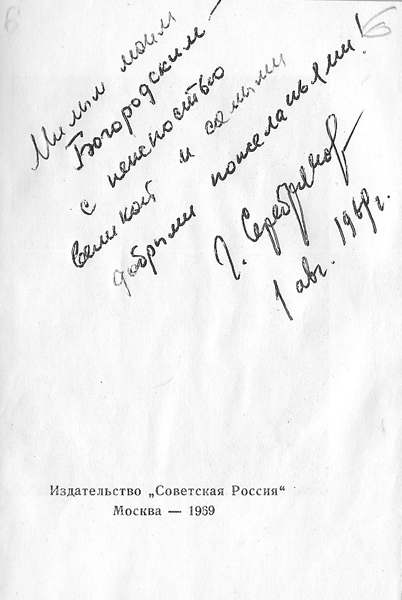 Милым моим
Богородским
с нежностью
великой и самыми
добрыми пожеланьями!
Г. Серебрякова
1 авг. 1969 г.
Издательство „Советская Россия“
Москва — 1969